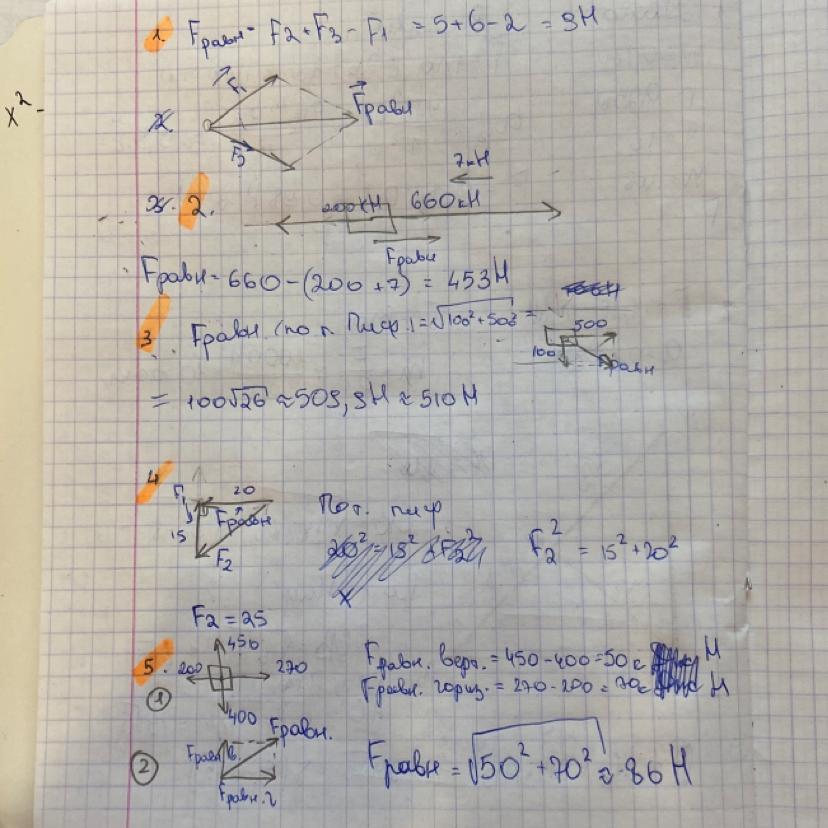 x² -
1. Fравн = F2 + F3 - F1 = 5+6-2 = 9Н
F1
Fравн
F3
7кН
2. 200кН 660кН
Fравн
Fравн = 660 - (200 + 7) = 453Н
3. Fравн (по т. Пиф.) = √100² + 500² =
500
100
Fравн
= 100√26 ≈ 509,9Н ≈ 510Н
4
F1 20
Fравн
15
F2
По т. пиф
F2² = 15² + 20²
F2 = 25
5. 450
200 270
400
Fравн. верт. = 450 - 400 = 50 Н
Fравн. гориз. = 270 - 200 = 70 Н
1
2
Fравн.
Fравн. в.
Fравн. г
Fравн = √50² + 70² ≈ 86 Н